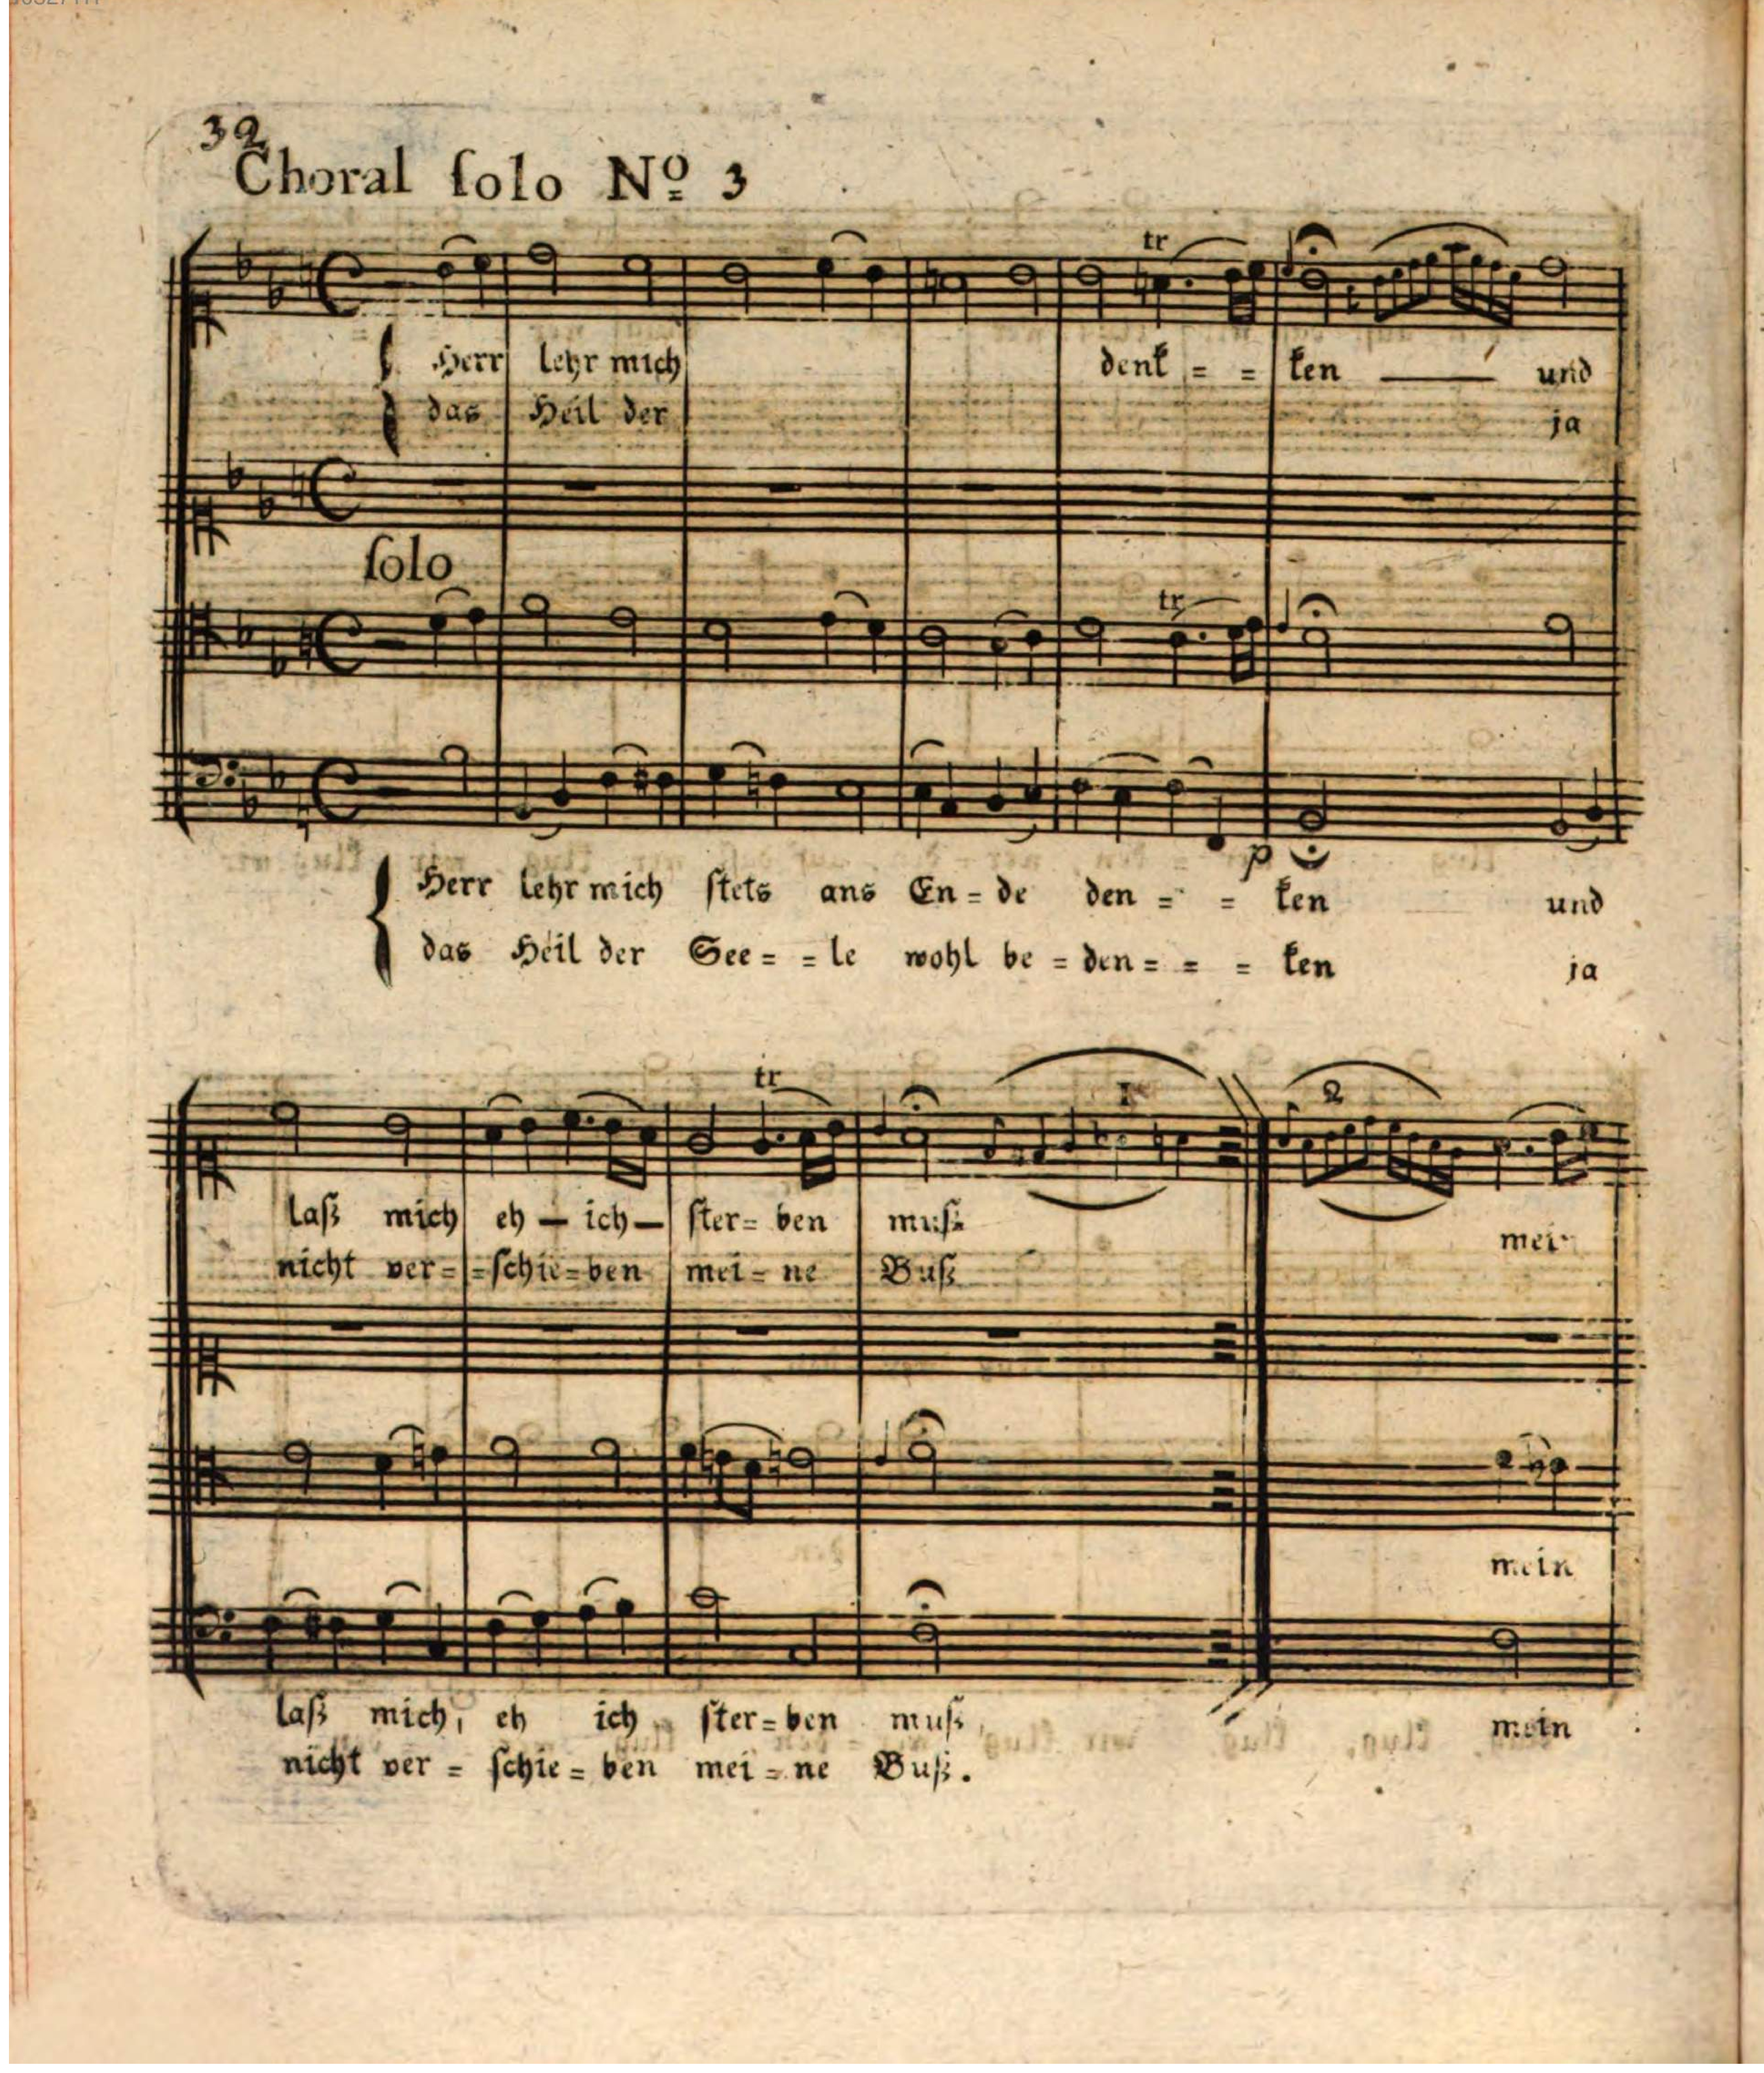 32
Choral ſolo Nº 3
tr
Herr lehr mich denk = = ken — und
das Heil der ja
ſolo
tr
p
Herr lehr mich ſtets ans En = de den = = ken und
das Heil der See = = le wohl be = den = = = ken ja
tr 1 2
laß mich eh — ich — ſter = ben muß
nicht ver = = ſchie = ben mei = ne Buß
mein
laß mich, eh ich ſter = ben muß, mein
nicht ver = ſchie = ben mei = ne Buß.